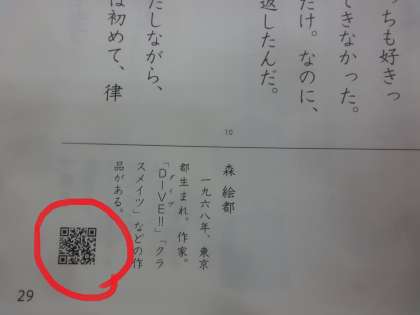 っちも好きっ
てきなかった。
だけ。なのに、
返したんだ。
たしながら、
は初めて、律
10
森 絵都
一九六八年、東京
都生まれ。作家。
「DIVE!!」「クラ
ダイブ
スメイツ」などの作
品がある。
29